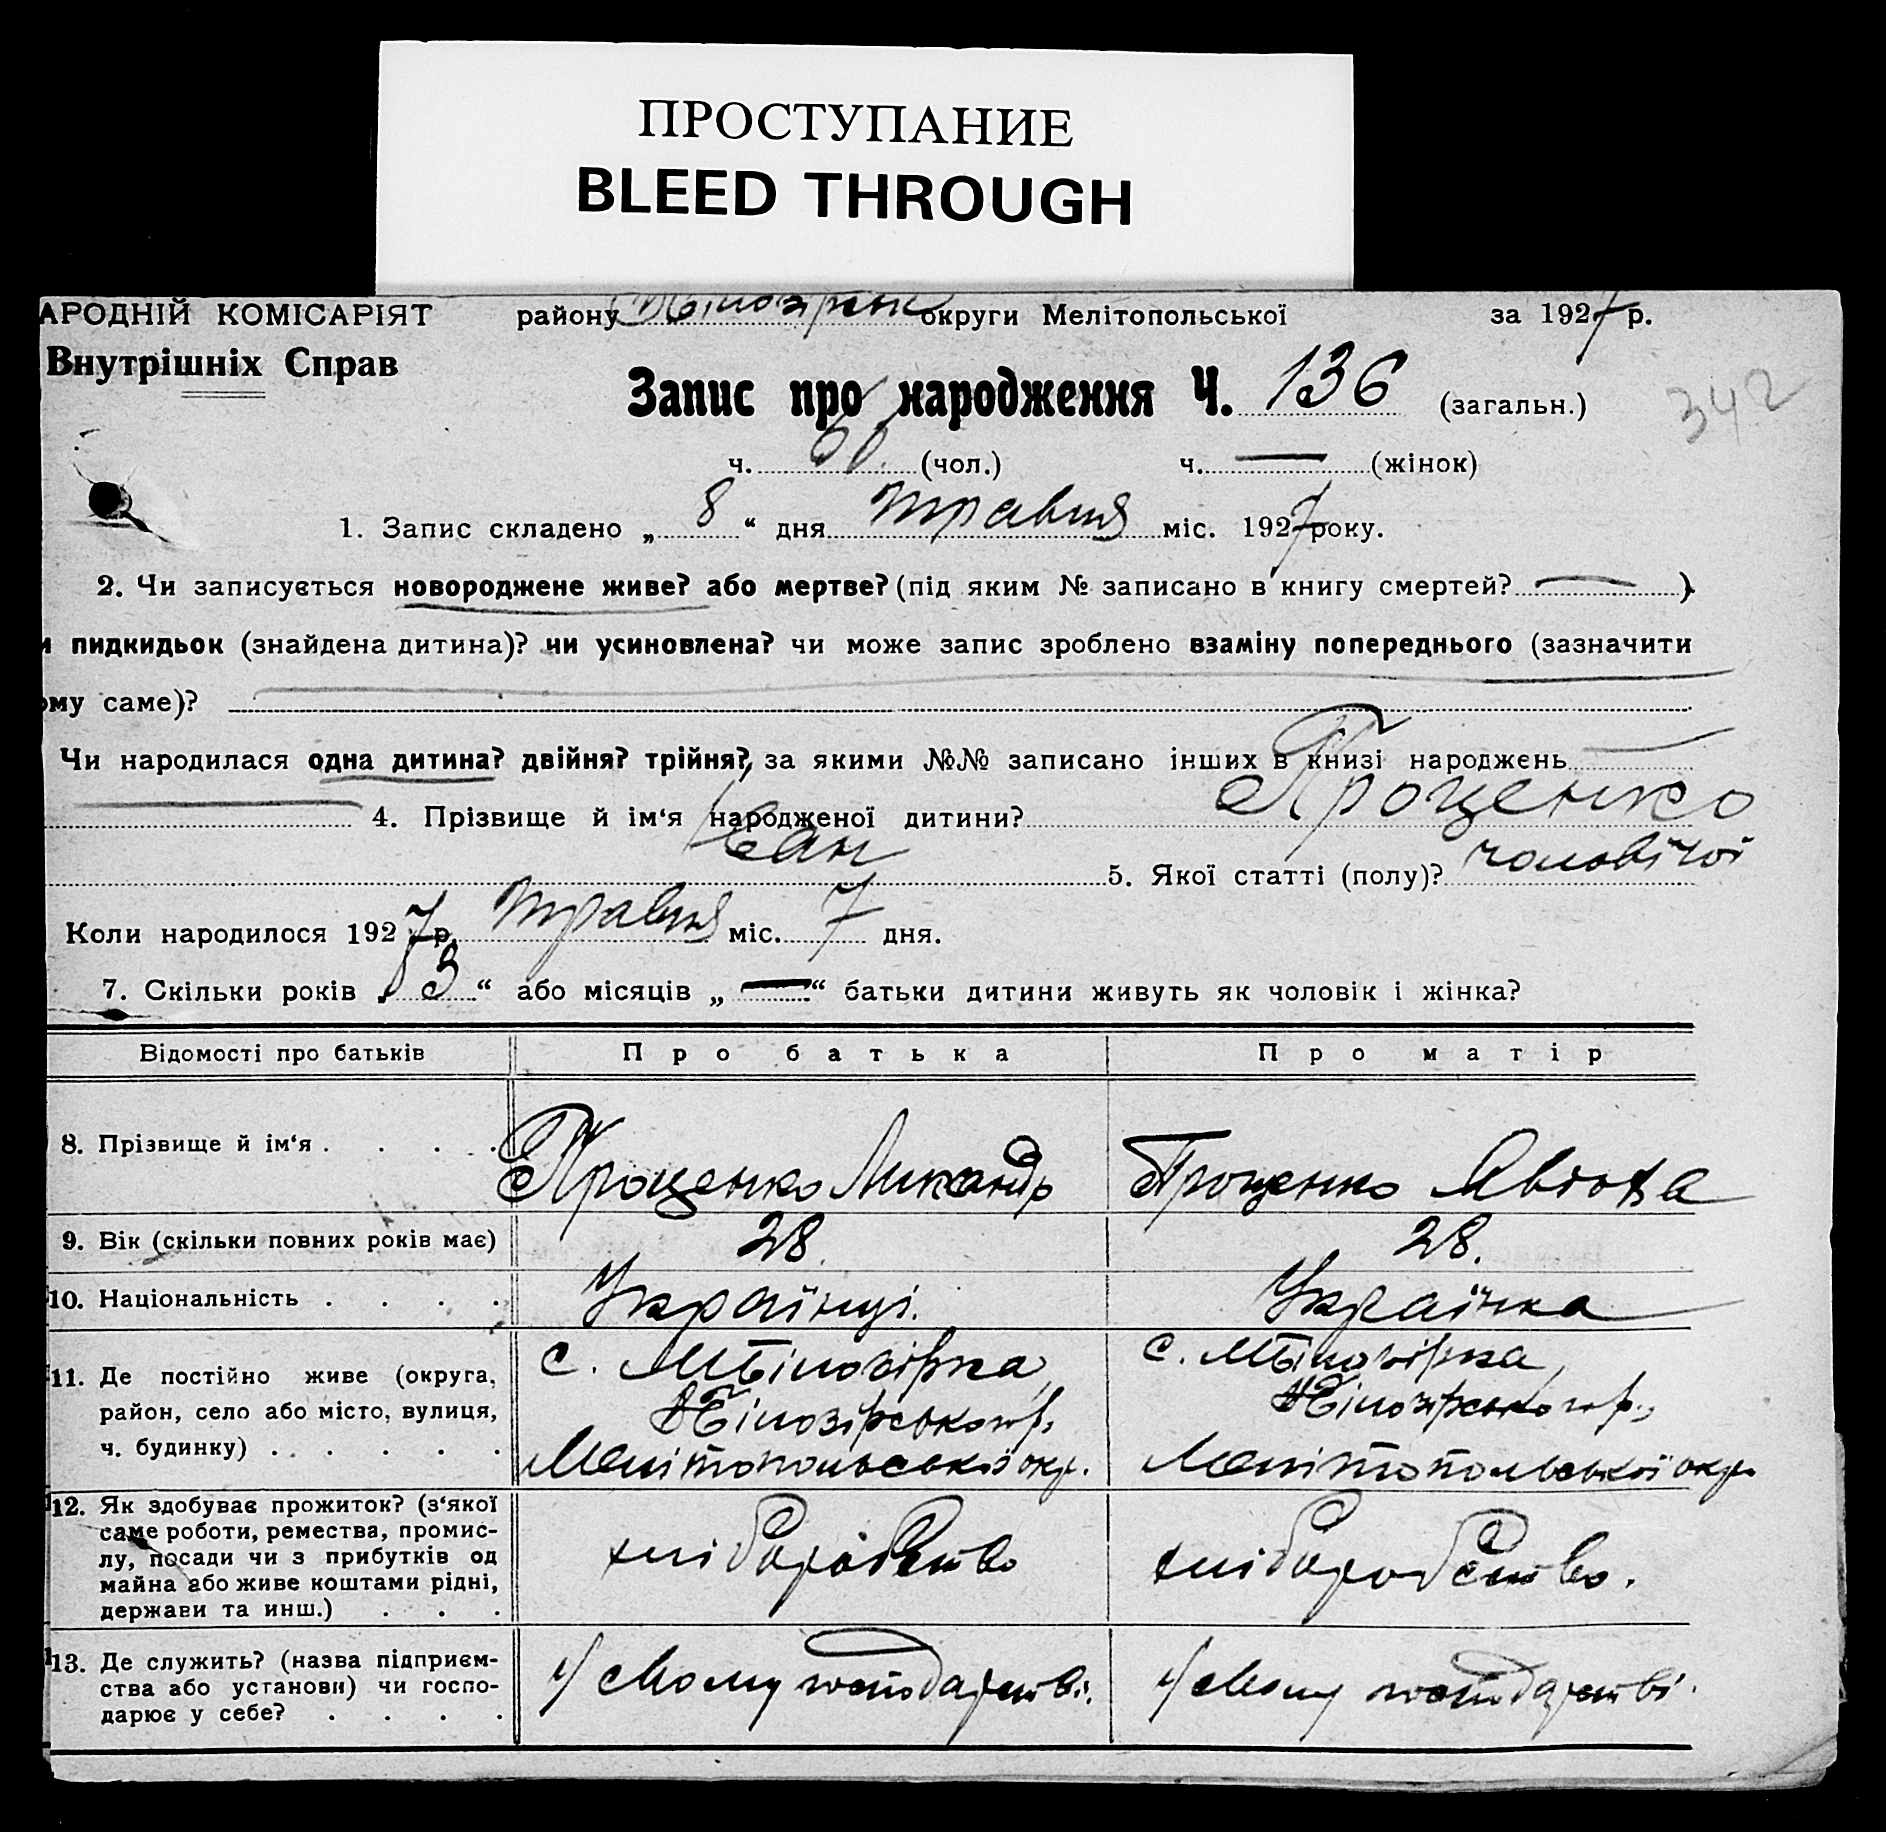 ПРОСТУПАНИЕ
BLEED THROUGH
АРОДНІЙ КОМІСАРІЯТ району округи Мелітопольської за 1927 р.
Внутрішніх Справ
Запис про народження Ч. 136 (загальн.)
342
ч. (чол.) ч. — (жінок)
1. Запис складено „ 8 “ дня травня міс. 1927 року.
2. Чи записується новороджене живе? або мертве? (під яким № записано в книгу смертей? — )
и пидкидьок (знайдена дитина)? чи усиновлена? чи може запис зроблено взаміну попереднього (зазначити
ому саме)? —
Чи народилася одна дитина? двійня? трійня?, за якими №№ записано інших в книзі народжень —
— 4. Прізвище й ім‘я народженої дитини? Проценко
Іван 5. Якої статті (полу)? чоловічої
Коли народилося 1927 р. травня міс. 7 дня.
7. Скільки років „ 3 “ або місяців „ — “ батьки дитини живуть як чоловік і жінка?
Відомості про батьків Про батька Про матір
8. Прізвище й ім‘я . . . . Проценко Никандр Проценко
9. Вік (скільки повних років має) 28. 28.
10. Національність . . . . Українці. Українка
11. Де постійно живе (округа, с. Білозірка, с. Білозірка,
район, село або місто, вулиця, Білозірського р., Білозірського р.,
ч. будинку) . . . . . Мелітопольської окр. Мелітопольської окр.
12. Як здобуває прожиток? (з‘якої
саме роботи, ремества, промис-
лу, посади чи з прибутків од хліборобство хліборобство.
майна або живе коштами рідні,
держави та инш.) . . .
13. Де служить? (назва підприєм-
ства або установи) чи госпо- У свому господарстві. У свому господарстві.
дарює у себе? . . . .